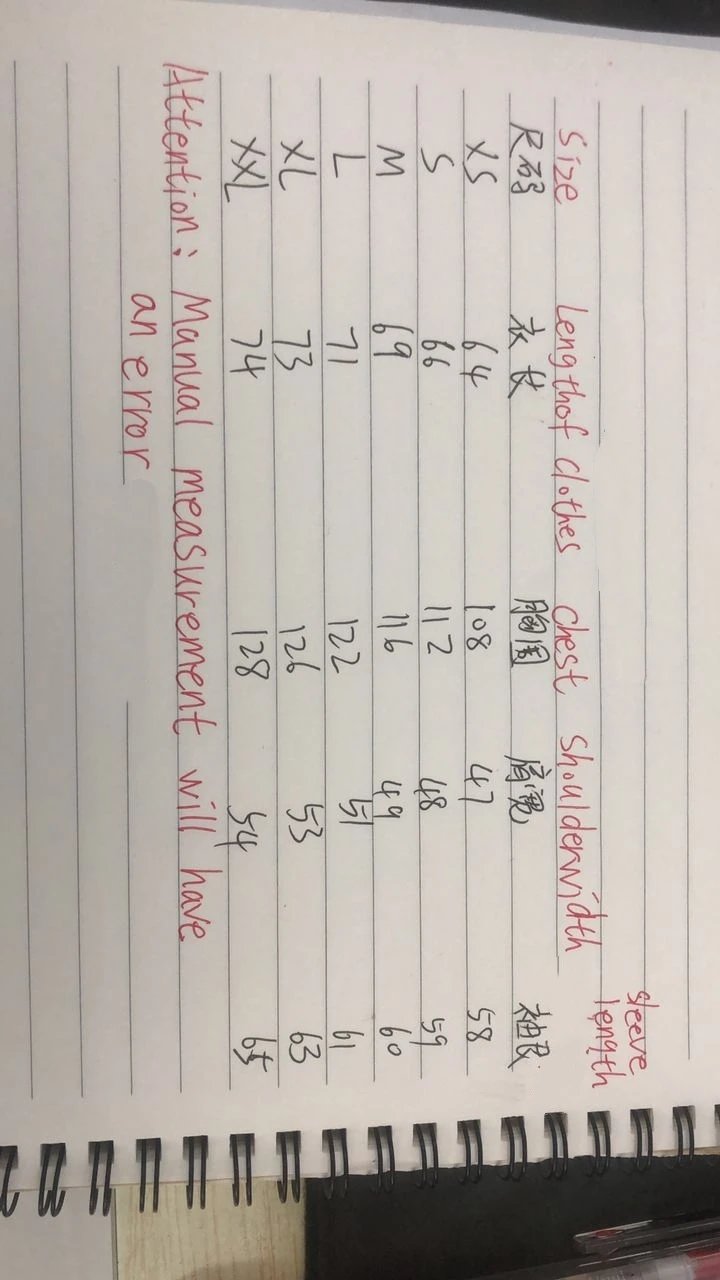 Sleeve
length
Size Length of clothes chest Shoulderwidth
尺码 衣长 胸围 肩宽 袖长
XS 64 108 47 58
S 66 112 48 59
M 69 116 49 60
L 71 122 51 61
XL 73 126 53 63
XXL 74 128 54
Attention: Manual measurement will have
an error